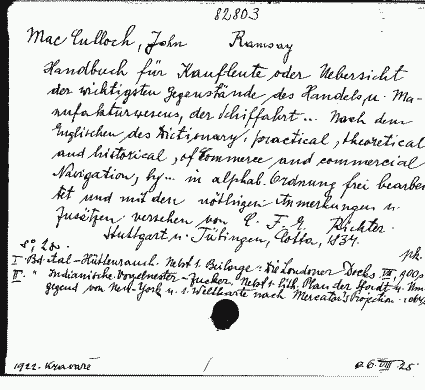 82803
Mac Culloch, John Ramsay
Handbuch für Kaufleute oder Uebersicht
der wichtigsten Gegenstände des Handels u. Ma-
nufakturwesens, der Schiffahrt... Nach dem
Englischen des Dictionary, practical, theoretical
and historical, of Commerce and commercial
Navigation, by... in alphab. Ordnung frei bearbei-
tet und mit den nöthigen Anmerkungen u.
Zusätzen versehen von C. F. E. Richter.
Stuttgart u. Tübingen, Cotta, 1834.
8°, 2 Bs.
I Bd. Aal-Hüttenrauch. Nebst 1. Beilage: Die Londoner Docks VIII, 900 s
II. " Indianische Vogelnester-Zucker. Nebst 1. lith. Plan der Stadt u. Um
gegend von New-York u. 1. Weltkarte nach Mercator's Projection. 1064 s
1922. Kravaře